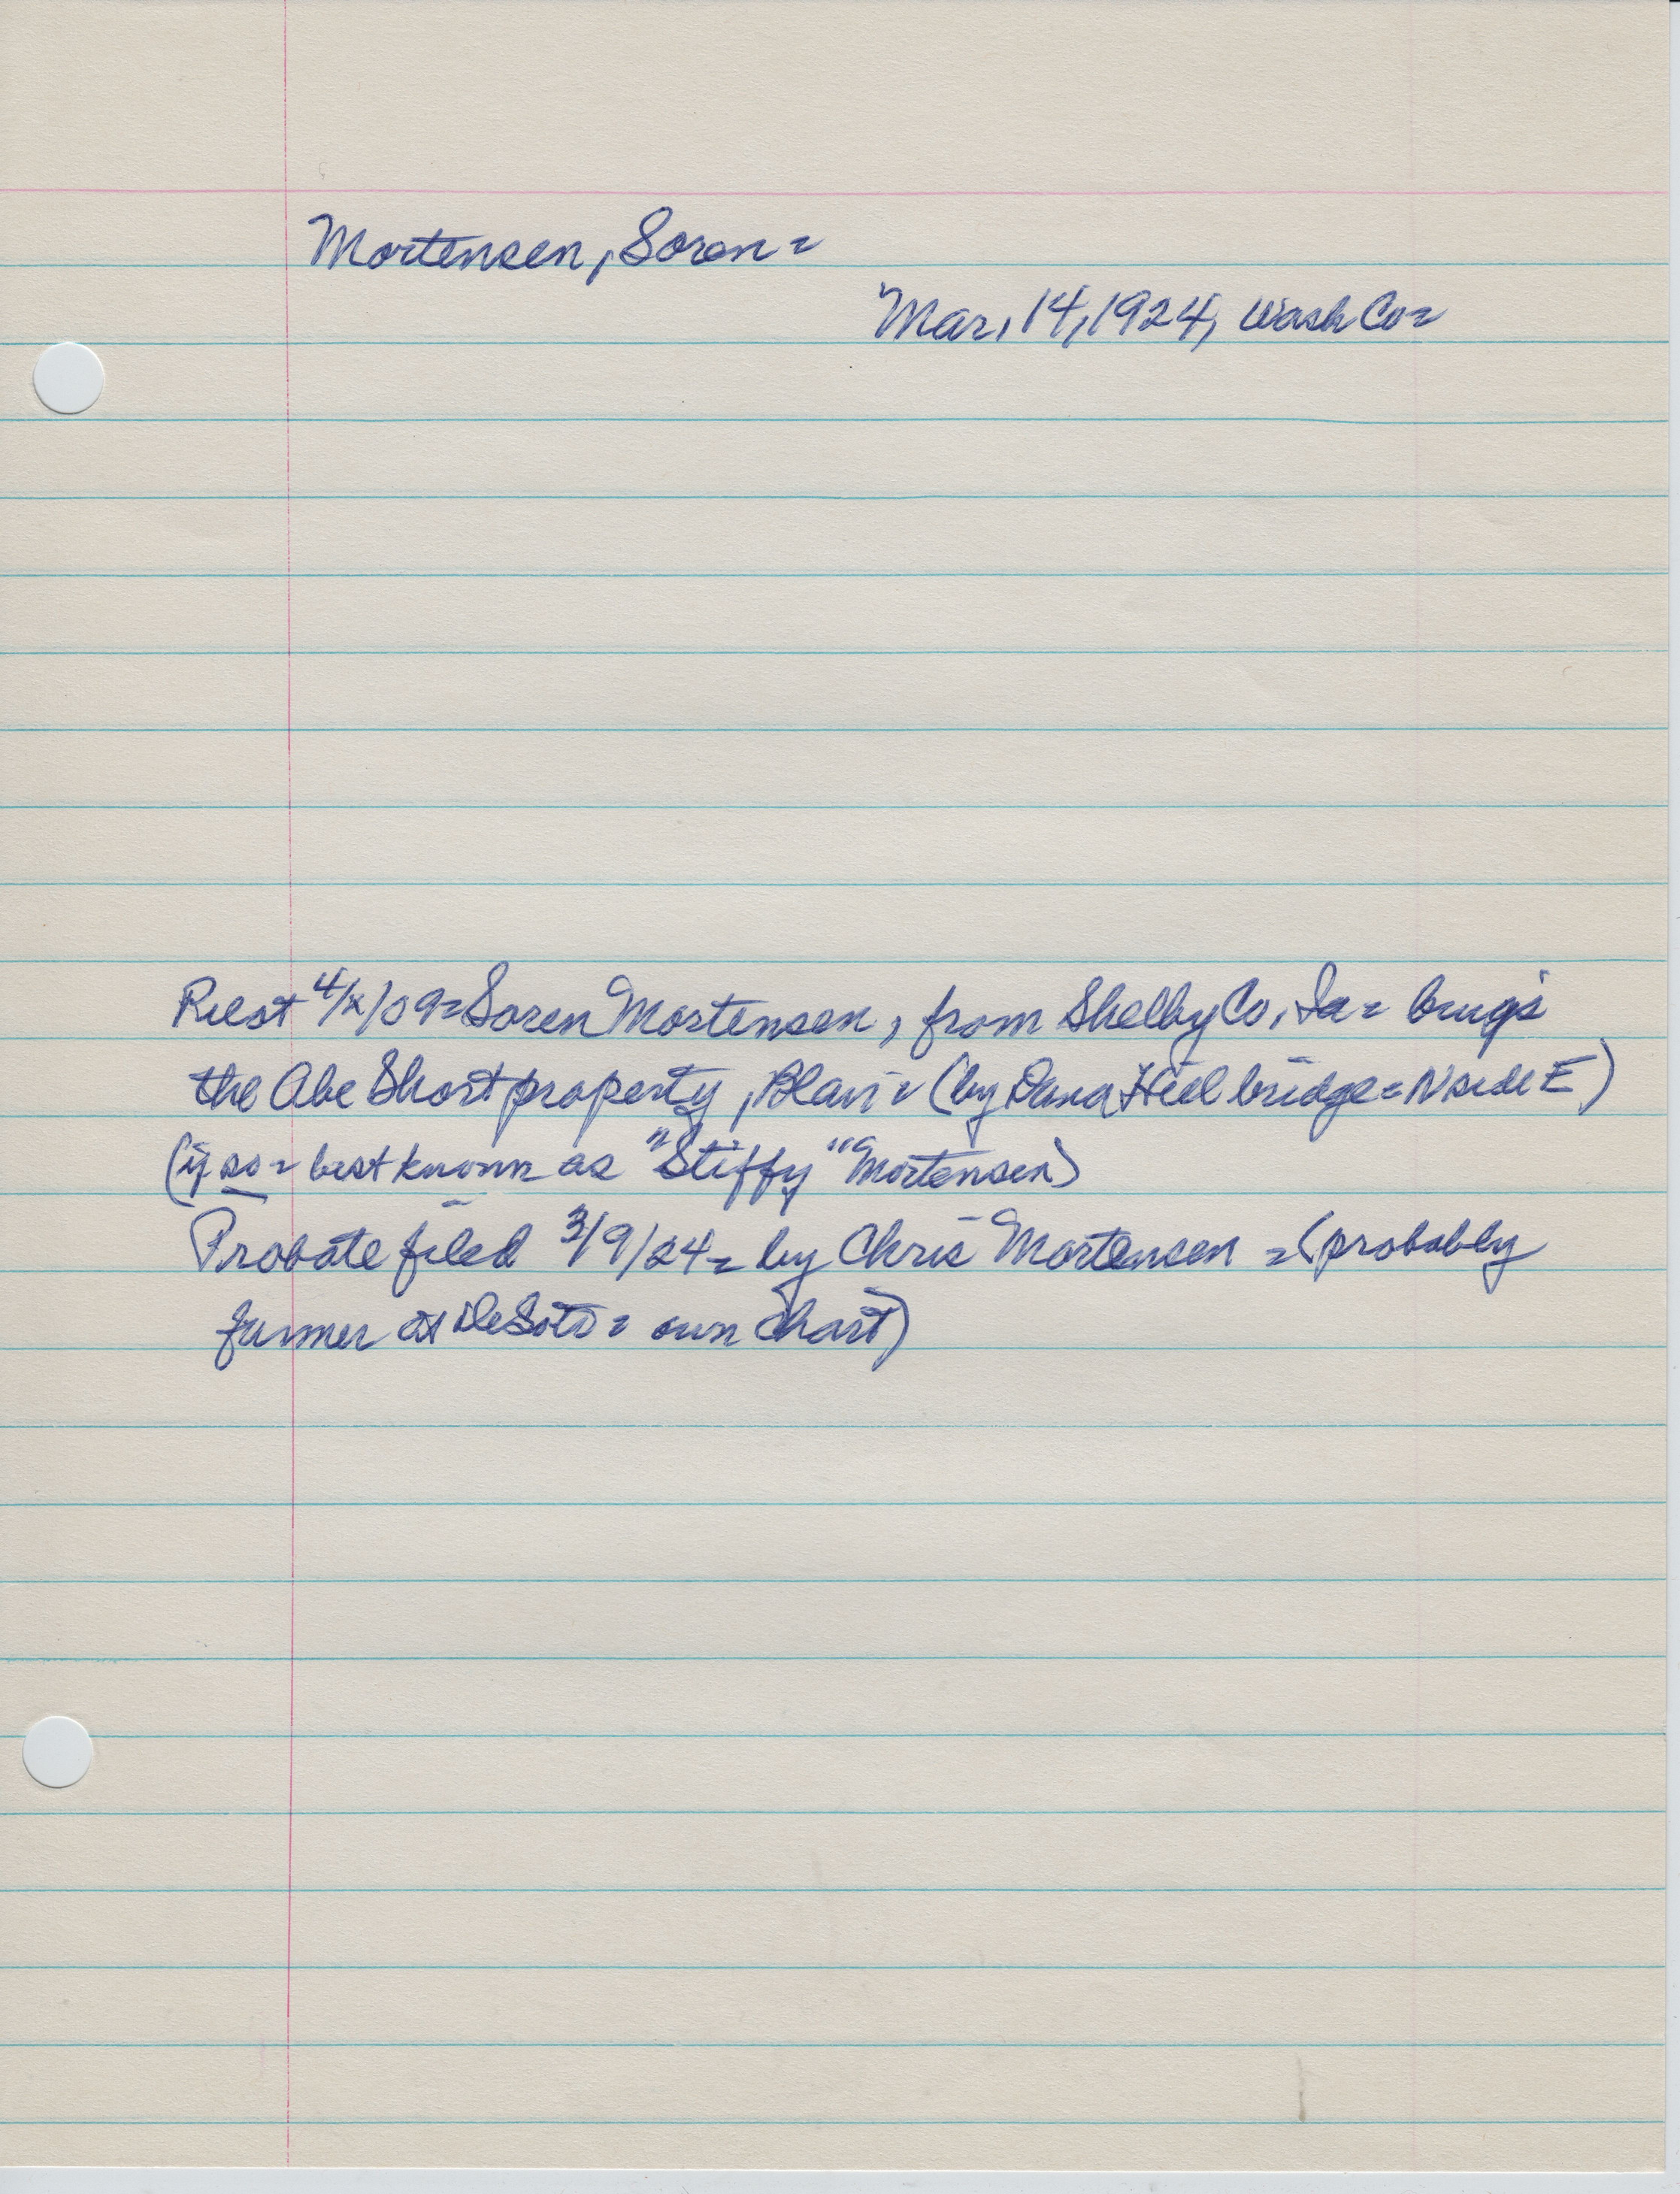 Mortensen, Soren =
Mar, 14, 1924, Wash Co =
4/x/09 = Soren Mortensen, from Shelby Co, Ia =
the Abe Short property, Blair = (by Dana Hill bridge = N side E)
(if so = best known as "Stiffy" Mortensen)
Probate filed 3/9/24 = by Chris Mortensen = (probably
farmer at DeSoto = own chart)